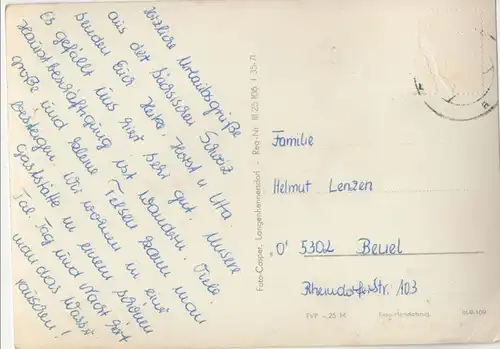 Herzliche Urlaubsgrüße
aus der Sächsischen Schweiz
senden Euch Heiko, Horst u. Uta.
Es gefällt uns hier sehr gut. Unsere
Hauptbeschäftigung ist wandern. Viele
große und kleine Felsen kann man
besteigen. Wir wohnen in einer
Gaststätte in einem schönen
Tal. Tag und Nacht hört
man das Wasser
rauschen!
Foto-Casper, Langenhennersdorf - Reg.-Nr. III 25 106 I 35/71
Familie
Helmut Lenzen
"O" 5302 Beuel
Rheindorferstr. 103
EVP -.25 M